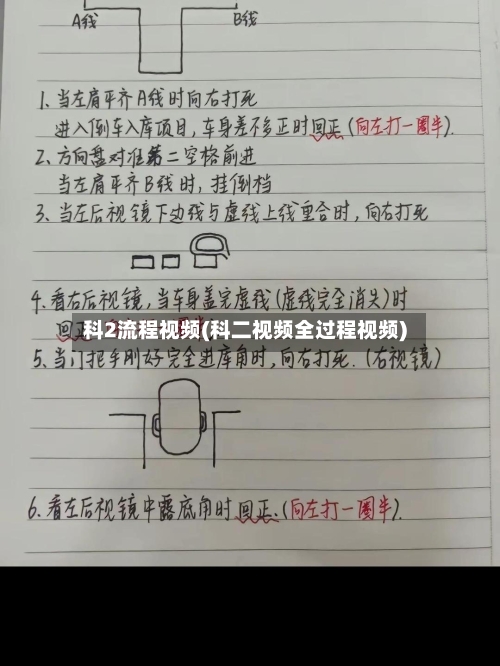 A线 B线
1、当左肩平齐A线时向右打死
进入倒车入库项目,车身差不多正时回正(向左打一圈半).
2、方向盘对准第二空格前进
当左肩平齐B线时,挂倒档
3、当左后视镜下边线与虚线上线重合时,向右打死
4、看右后视镜,当车身盖完虚线(虚线完全消失)时
回正
科2流程视频(科二视频全过程视频)
5、当门把手刚好完全进库角时,向右打死.(右视镜)
6、看左后视镜中露底角时回正、(向左打一圈半).